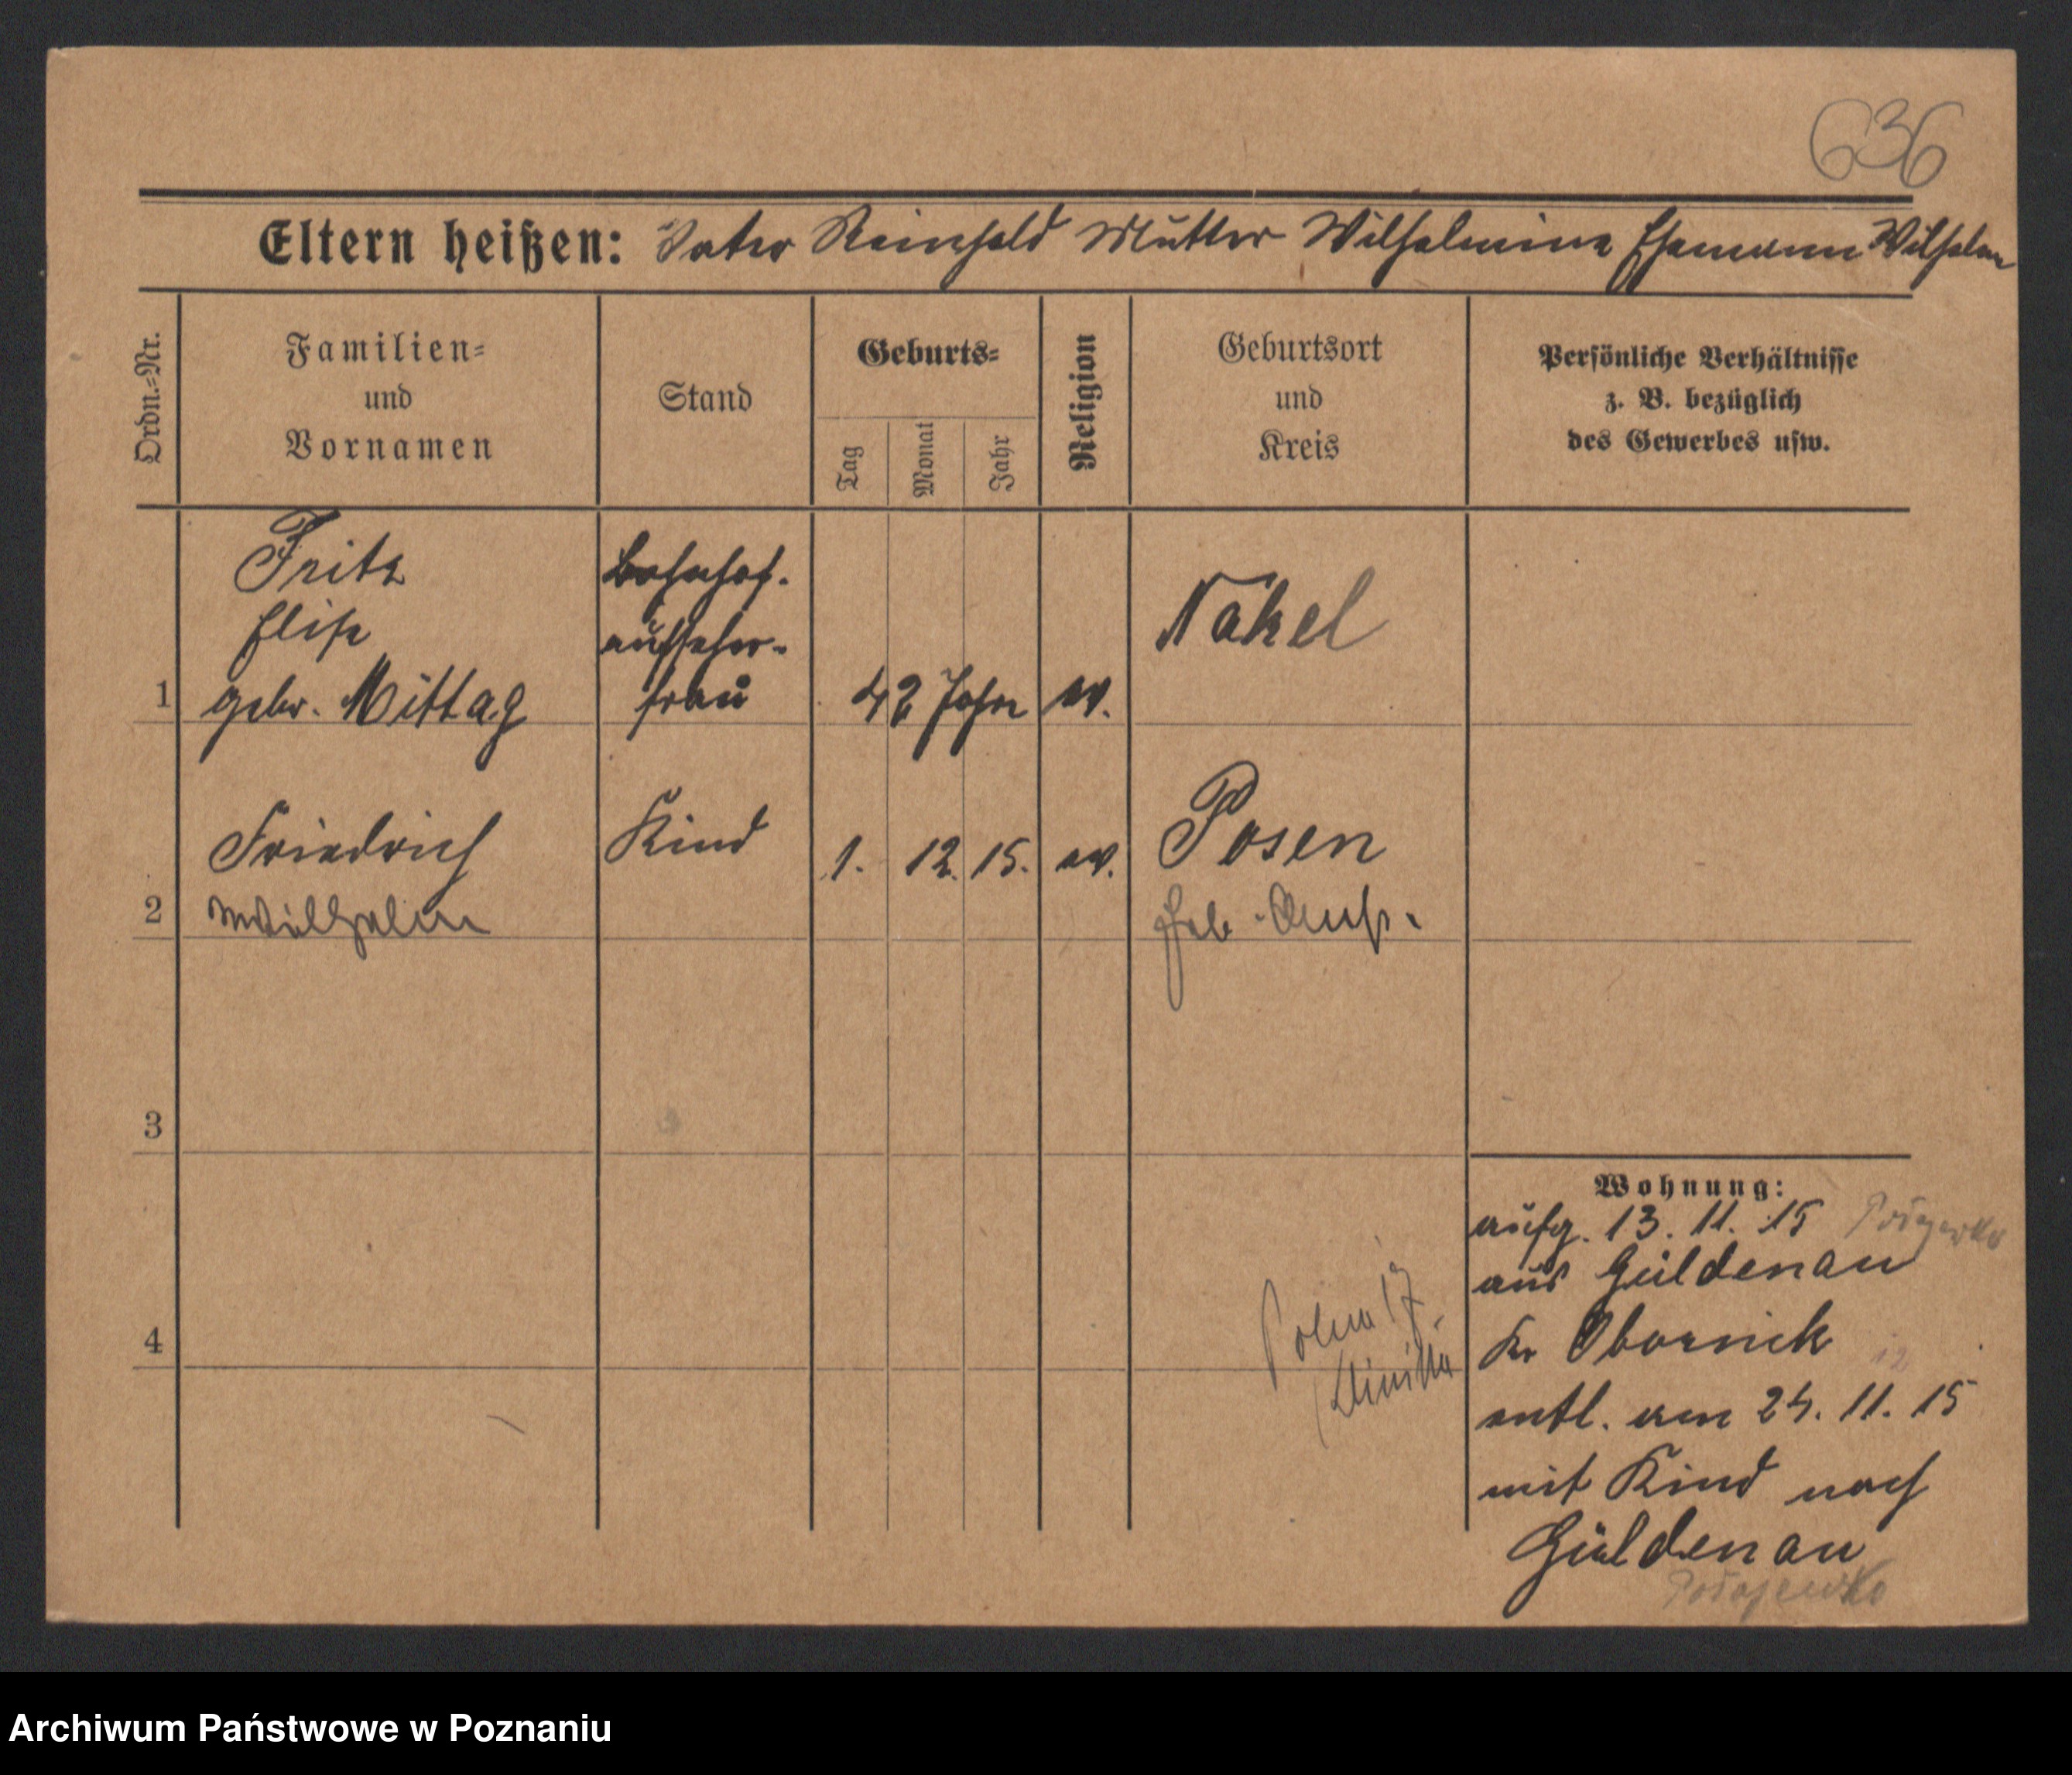 636
Eltern heißen: Vater Reinhold Mutter Wilhelmine Ehemann Wilhelm
Ordn.-Nr.
Familien-
und
Vornamen
Stand
Geburts-
Tag
Monat
Jahr
Religion
Geburtsort
und
Kreis
Persönliche Verhältnisse
z. B. bezüglich
des Gewerbes usw.
1
Fritz
Elise
gebr. Mittag
Bahnhof-
aufseher-
frau
42 Jahre
ev.
Nakel
2
Friedrich
Wilhelm
Kind
1. 12. 15.
ev.
Posen
Heb. Anst.
3
4
Polna 17
Wohnung:
aufg. 13. 11. 15
aus Güldenau
Kr Obornick
12
entl. am 24. 11. 15
mit Kind nach
Güldenau
Podajewko
Archiwum Państwowe w Poznaniu